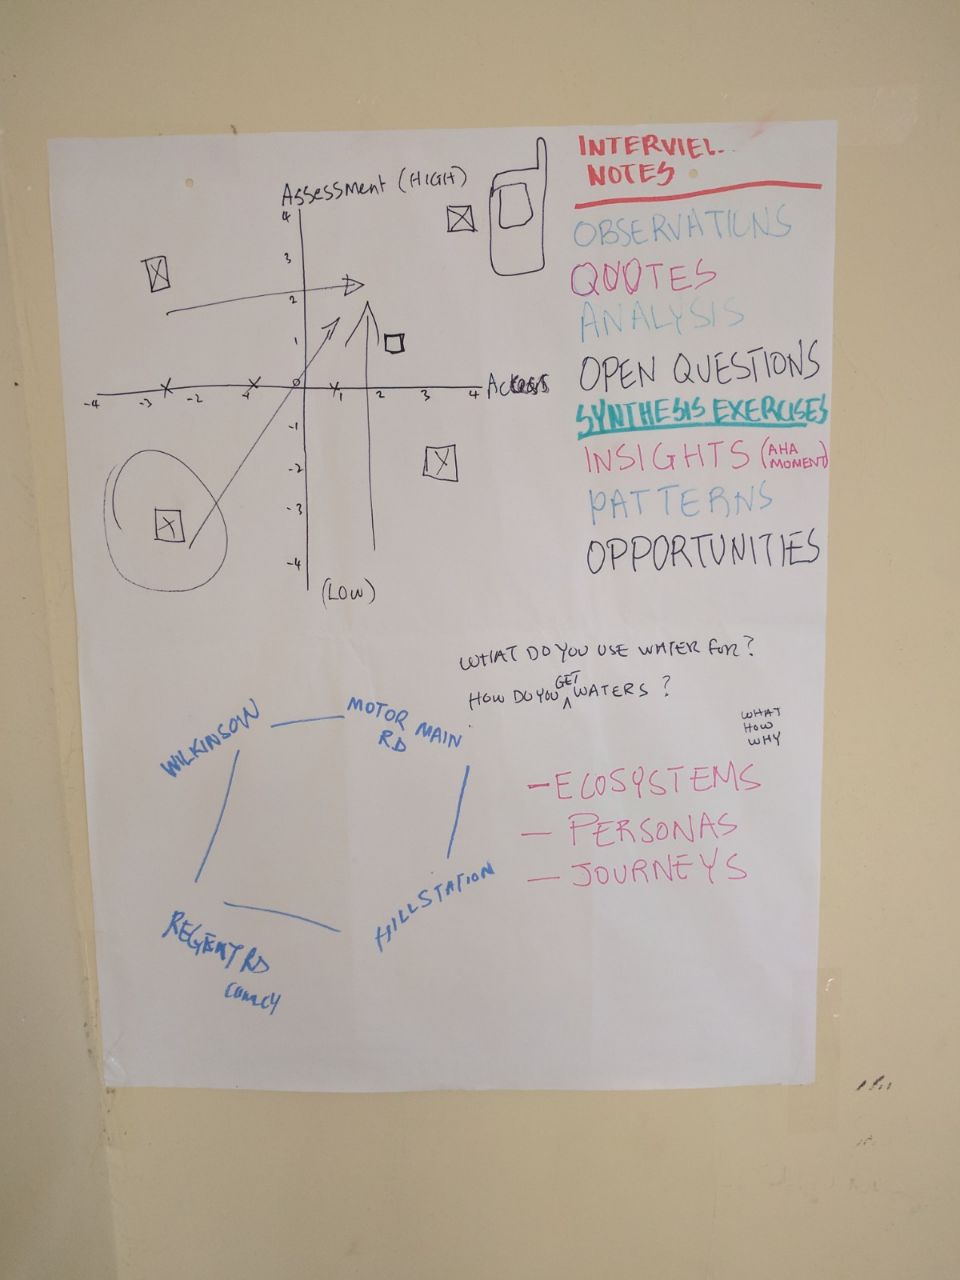 Assessment (HIGH)
4
3
2
1
-4 -3 -2 -1 1 2 3 4
-1
-2
-3
-4
(LOW)
NOTES
OBSERVATIONS
QUOTES
ANALYSIS
OPEN QUESTIONS
SYNTHESIS EXERCISES
INSIGHTS (AHA
MOMENT)
PATTERNS
OPPORTUNITIES
WHAT DO YOU USE WATER FOR?
GET
HOW DO YOU ^ WATERS ?
WHAT
HOW
WHY
- ECOSYSTEMS
- PERSONAS
- JOURNEYS
WILKINSON
MOTOR MAIN
RD
HILLSTATION
REGENT RD